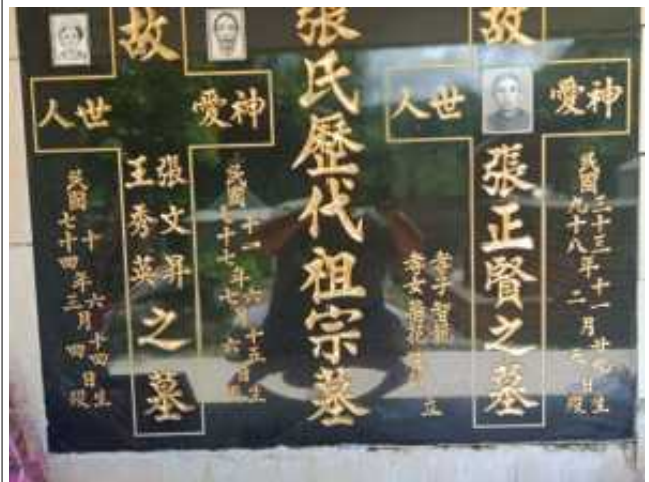 故
神愛世人
張正賢之墓
民國三十三年十一月廿
九十八 二
日生
日歿
孝子
孝女
立
張氏歷代祖宗墓
故
神愛世人
張文昇
王秀英
之墓
民國十一年六月十五日生
七十七年七月六
民國十年六月十四日生
七十四年三月四日歿